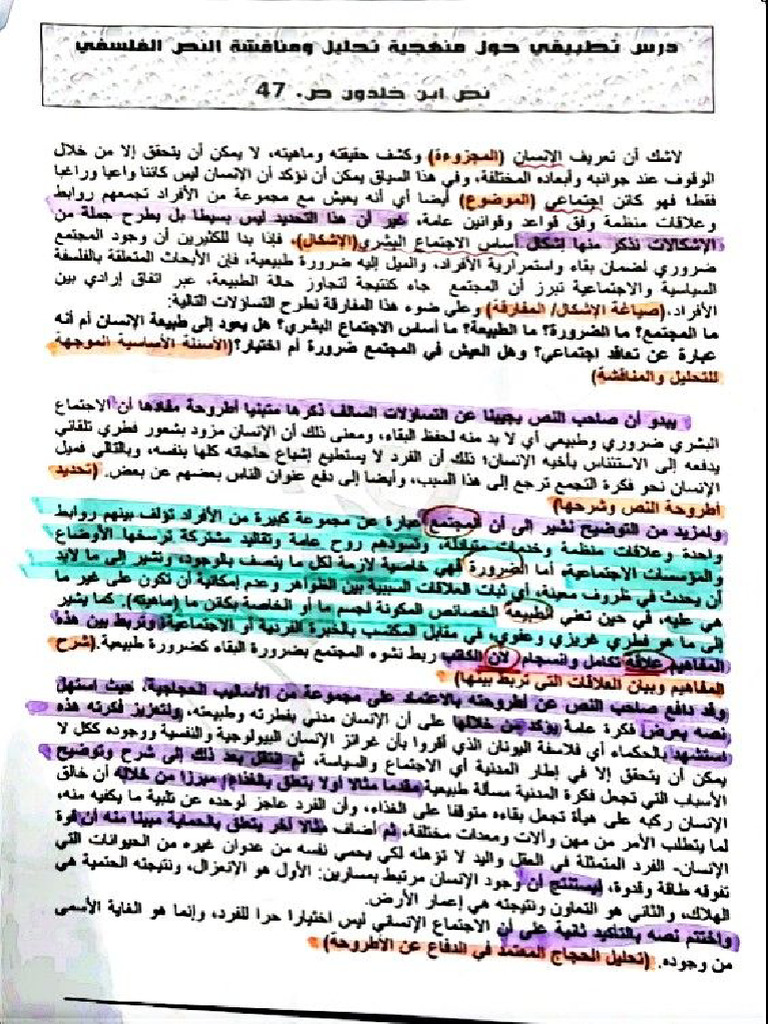 درس تطبيقي حول منهجية تحليل ومناقشة النص الفلسفي
نص ابن خلدون ص. 47
لاشك أن تعريف الإنسان (المجزوءة) وكشف حقيقته وماهيته، لا يمكن أن يتحقق إلا من خلال
الوقوف عند جوانبه وأبعاده المختلفة، وفي هذا السياق يمكن أن نؤكد أن الانسان ليس كائنا واعيا وراغبا
فقط؛ فهو كائن اجتماعي (الموضوع) أيضا أي أنه يعيش مع مجموعة من الأفراد تجمعهم روابط
وعلاقات منظمة وفق قواعد وقوانين عامة، غير أن هذا التحديد ليس بسيطا بل يطرح جملة من
الإشكالات نذكر منها إشكال أساس الاجتماع البشري(الإشكال)، فإذا بدا للكثيرين أن وجود المجتمع
ضروري لضمان بقاء واستمرارية الأفراد، والميل إليه ضرورة طبيعية، فإن الأبحاث المتعلقة بالفلسفة
السياسية والاجتماعية تبرز أن المجتمع جاء كنتيجة لتجاوز حالة الطبيعة، عبر اتفاق إرادي بين
الأفراد.(صياغة الإشكال/ المفارقة) وعلى ضوء هذا المفارقة نطرح التساؤلات التالية:
ما المجتمع؟ ما الضرورة؟ ما الطبيعة؟ ما أساس الاجتماع البشري؟ هل يعود إلى طبيعة الإنسان أم أنه
عبارة عن تعاقد اجتماعي؟ وهل العيش في المجتمع ضرورة أم اختيار؟(الأسئلة الأساسية الموجهة
للتحليل والمناقشة)
يبدو أن صاحب النص يجيبنا عن التساؤلات السالف ذكرها متبنيا أطروحة مفادها أن الاجتماع
البشري ضروري وطبيعي أي لا بد منه لحفظ البقاء، ومعنى ذلك أن الإنسان مزود بشعور فطري تلقائي
يدفعه إلى الاستئناس بأخيه الإنسان؛ ذلك أن الفرد لا يستطيع إشباع حاجاته كلها بنفسه، وبالتالي فميل
الإنسان نحو فكرة التجمع ترجع إلى هذا السبب، وأيضا إلى دفع عدوان الناس بعضهم عن بعض. (تحديد
أطروحة النص وشرحها)
ولمزيد من التوضيح نشير الى أن المجتمع عبارة عن مجموعة كبيرة من الأفراد تؤلف بينهم روابط
واحدة وعلاقات منظمة وخدمات متبادلة، وتسودهم روح عامة وتقاليد مشتركة ترسقها الأوضاع
والمؤسسات الاجتماعية، أما الضرورة فهي خاصية لازمة لكل ما يتصف بالوجود، وتشير إلى ما لابد
أن يحدث في ظروف معينة، أي ثبات العلاقات السببية بين الظواهر وعدم إمكانية أن تكون على غير ما
هي عليه، في حين تعني الطبيعة الخصائص المكونة لجسم ما أو الخاصة بكائن ما (ماهيته)، كما يشير
إلى ما هو فطري غريزي وعفوي، في مقابل المكتسب بالخبرة الفردية أو الاجتماعية، وتربط بين هذه
المفاهيم علاقة تكامل وانسجام لأن الكاتب ربط نشوء المجتمع بضرورة البقاء كضرورة طبيعية.(شرح
المفاهيم وبيان العلاقات التي تربط بينها)
وقد دافع صاحب النص عن أطروحته بالاعتماد على مجموعة من الأساليب الحجاجية، حيث استهل
نصه بعرض فكرة عامة يؤكد من خلالها على أن الإنسان مدني بفطرته وطبيعته، ولتعزيز فكرته هذه
استشهد بالحكماء أي فلاسفة اليونان الذي أقروا بأن غرائز الإنسان البيولوجية والنفسية ووجوده ككل لا
يمكن أن يتحقق إلا في إطار المدنية أي الاجتماع والسياسة، ثم انتقل بعد ذلك إلى شرح وتوضيح
الأسباب التي تجعل فكرة المدنية مسألة طبيعية مقدما مثالا أولا يتعلق بالغذاء؛ مبرزا من خلاله أن خالق
الإنسان ركبه على هيأة تجعل بقاءه متوقفا على الغذاء، وأن الفرد عاجز لوحده عن تلبية ما يكفيه منه،
لما يتطلب الأمر من مهن وآلات ومعدات مختلفة، ثم أضاف مثالا آخر يتعلق بالحماية مبينا منه أن قوة
الإنسان- الفرد المتمثلة في العقل واليد لا تؤهله لكي يحمي نفسه من عدوان غيره من الحيوانات التي
تفوقه طاقة وقدرة، ليستنتج أن وجود الإنسان مرتبط بمسارين: الأول هو الانعزال، ونتيجته الحتمية هي
الهلاك، والثاني هو التعاون ونتيجته هي إعمار الأرض.
واختتم نصه بالتأكيد ثانية على أن الاجتماع الإنساني ليس اختيارا حرا للفرد، وإنما هو الغاية الأسمى
من وجوده. (تحليل الحجاج المعتمد في الدفاع عن الأطروحة)